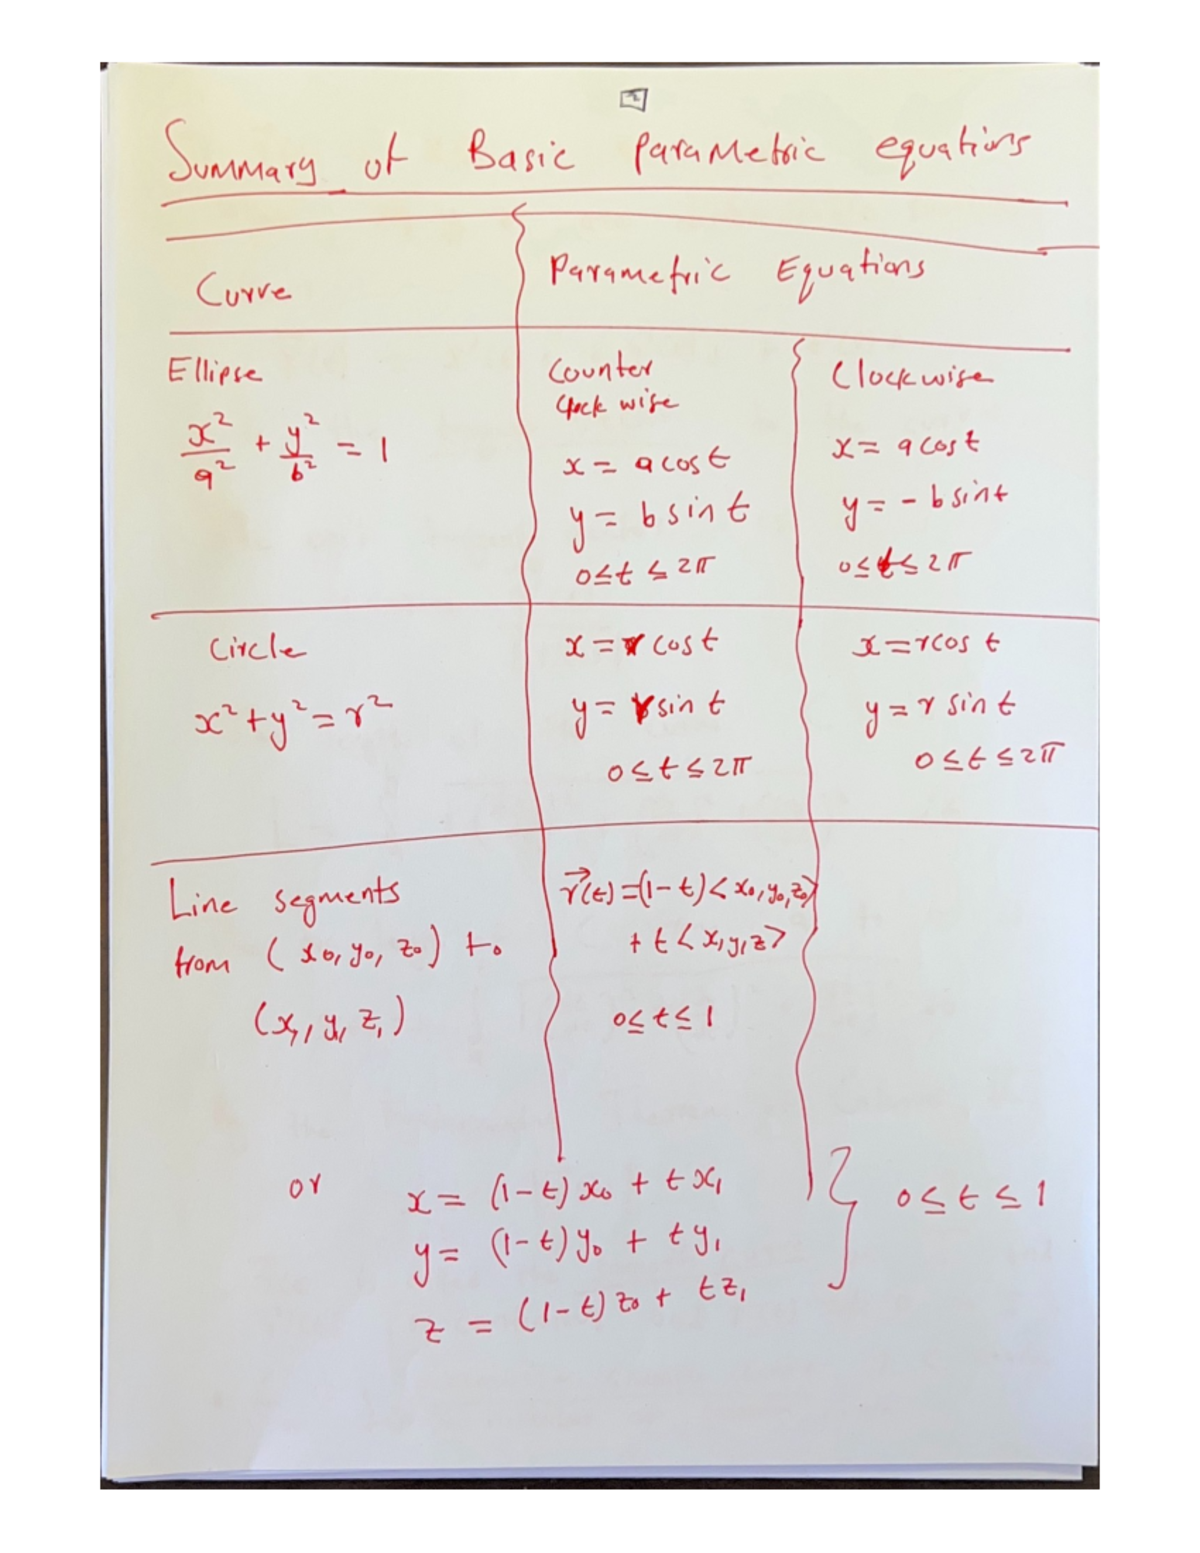 2
Summary of Basic Parametric equations
Curve
Parametric Equations
Ellipse
x²/a² + y²/b² = 1
Counter
Clock wise
x = a cos t
y = b sin t
0 ≤ t ≤ 2π
Clockwise
x = a cos t
y = - b sin t
0 ≤ t ≤ 2π
Circle
x² + y² = r²
x = r cos t
y = r sin t
0 ≤ t ≤ 2π
x = r cos t
y = r sin t
0 ≤ t ≤ 2π
Line segments
from (x₀, y₀, z₀) to
(x₁, y₁, z₁)
r⃗(t) = (1 - t) < x₀, y₀, z₀>
+ t < x, y, z >
0 ≤ t ≤ 1
or
x = (1 - t) x₀ + t x₁
y = (1 - t) y₀ + t y₁
z = (1 - t) z₀ + t z₁
} 0 ≤ t ≤ 1